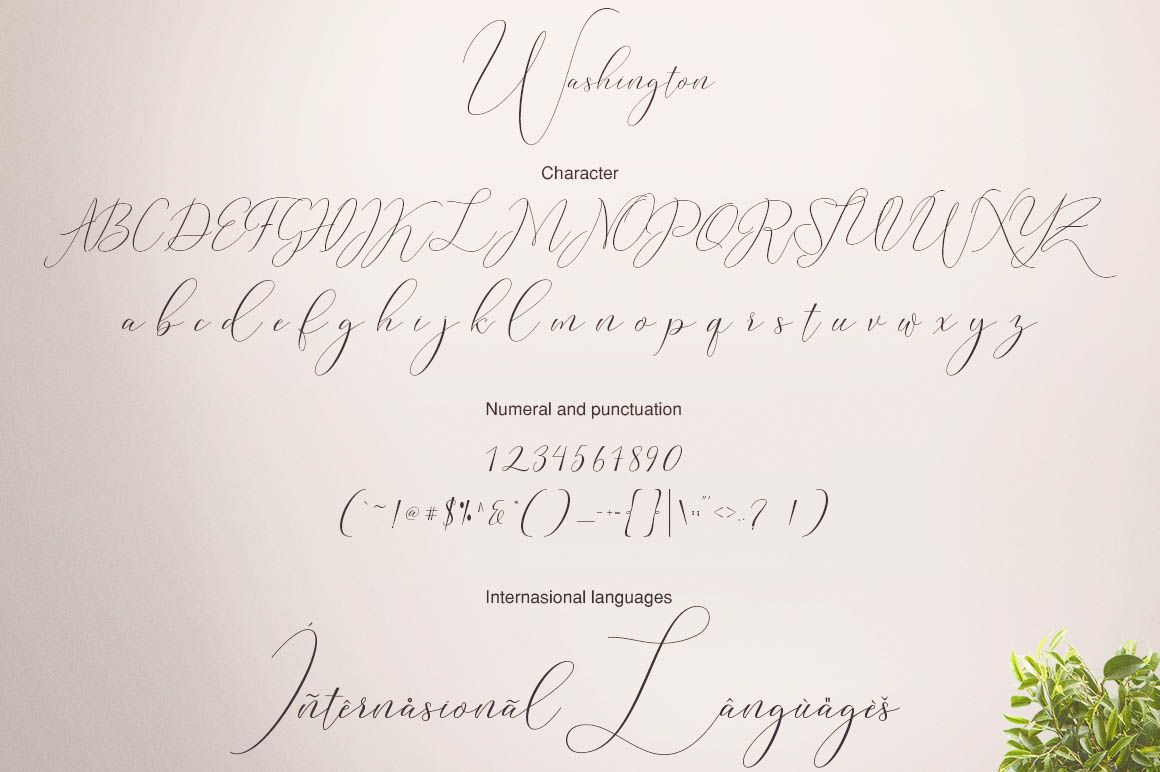 Washington
Character
ABCDEFGHIJKLMNOPQRSTUVWXYZ
a b c d e f g h i j k l m n o p q r s t u v w x y z
Numeral and punctuation
1234567890
(`~!@#$%^&*()_-+={}[]|\:;"'<>,.? /)
Internasional languages
Íñtêrnåsionãl Lângùägèš